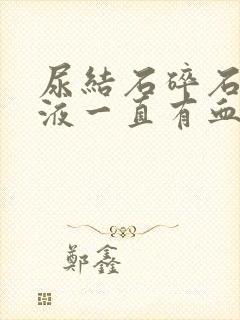 尿結石碎石
液一直有血
鄭鑫